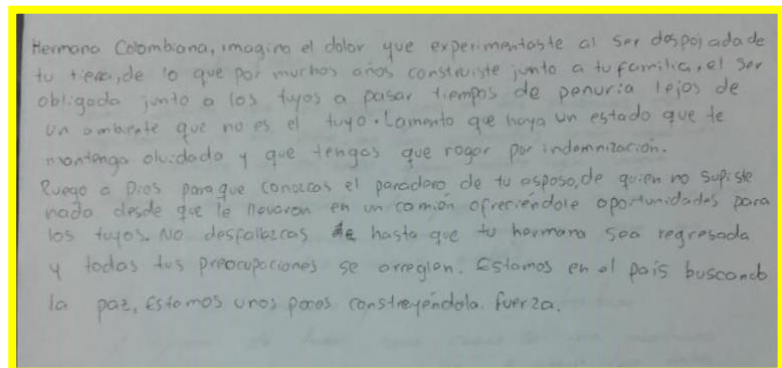 Hermana Colombiana, imagino el dolor que experimentaste al ser despojada de
tu tierra, de lo que por muchos años construiste junto a tu familia, el ser
obligada junto a los tuyos a pasar tiempos de penuria lejos de
un ambiente que no es el tuyo. Lamento que haya un estado que te
mantenga olvidada y que tengas que rogar por indemnización.
Ruego a Dios para que conozcas el paradero de tu esposo, de quien no supiste
nada desde que le llevaron en un camión ofreciéndole oportunidades para
los tuyos. No desfallezcas hasta que tu hermana sea regresada
y todas tus preocupaciones se arreglen. Estamos en el país buscando
la paz, Estamos unos pocos construyéndola. fuerza.